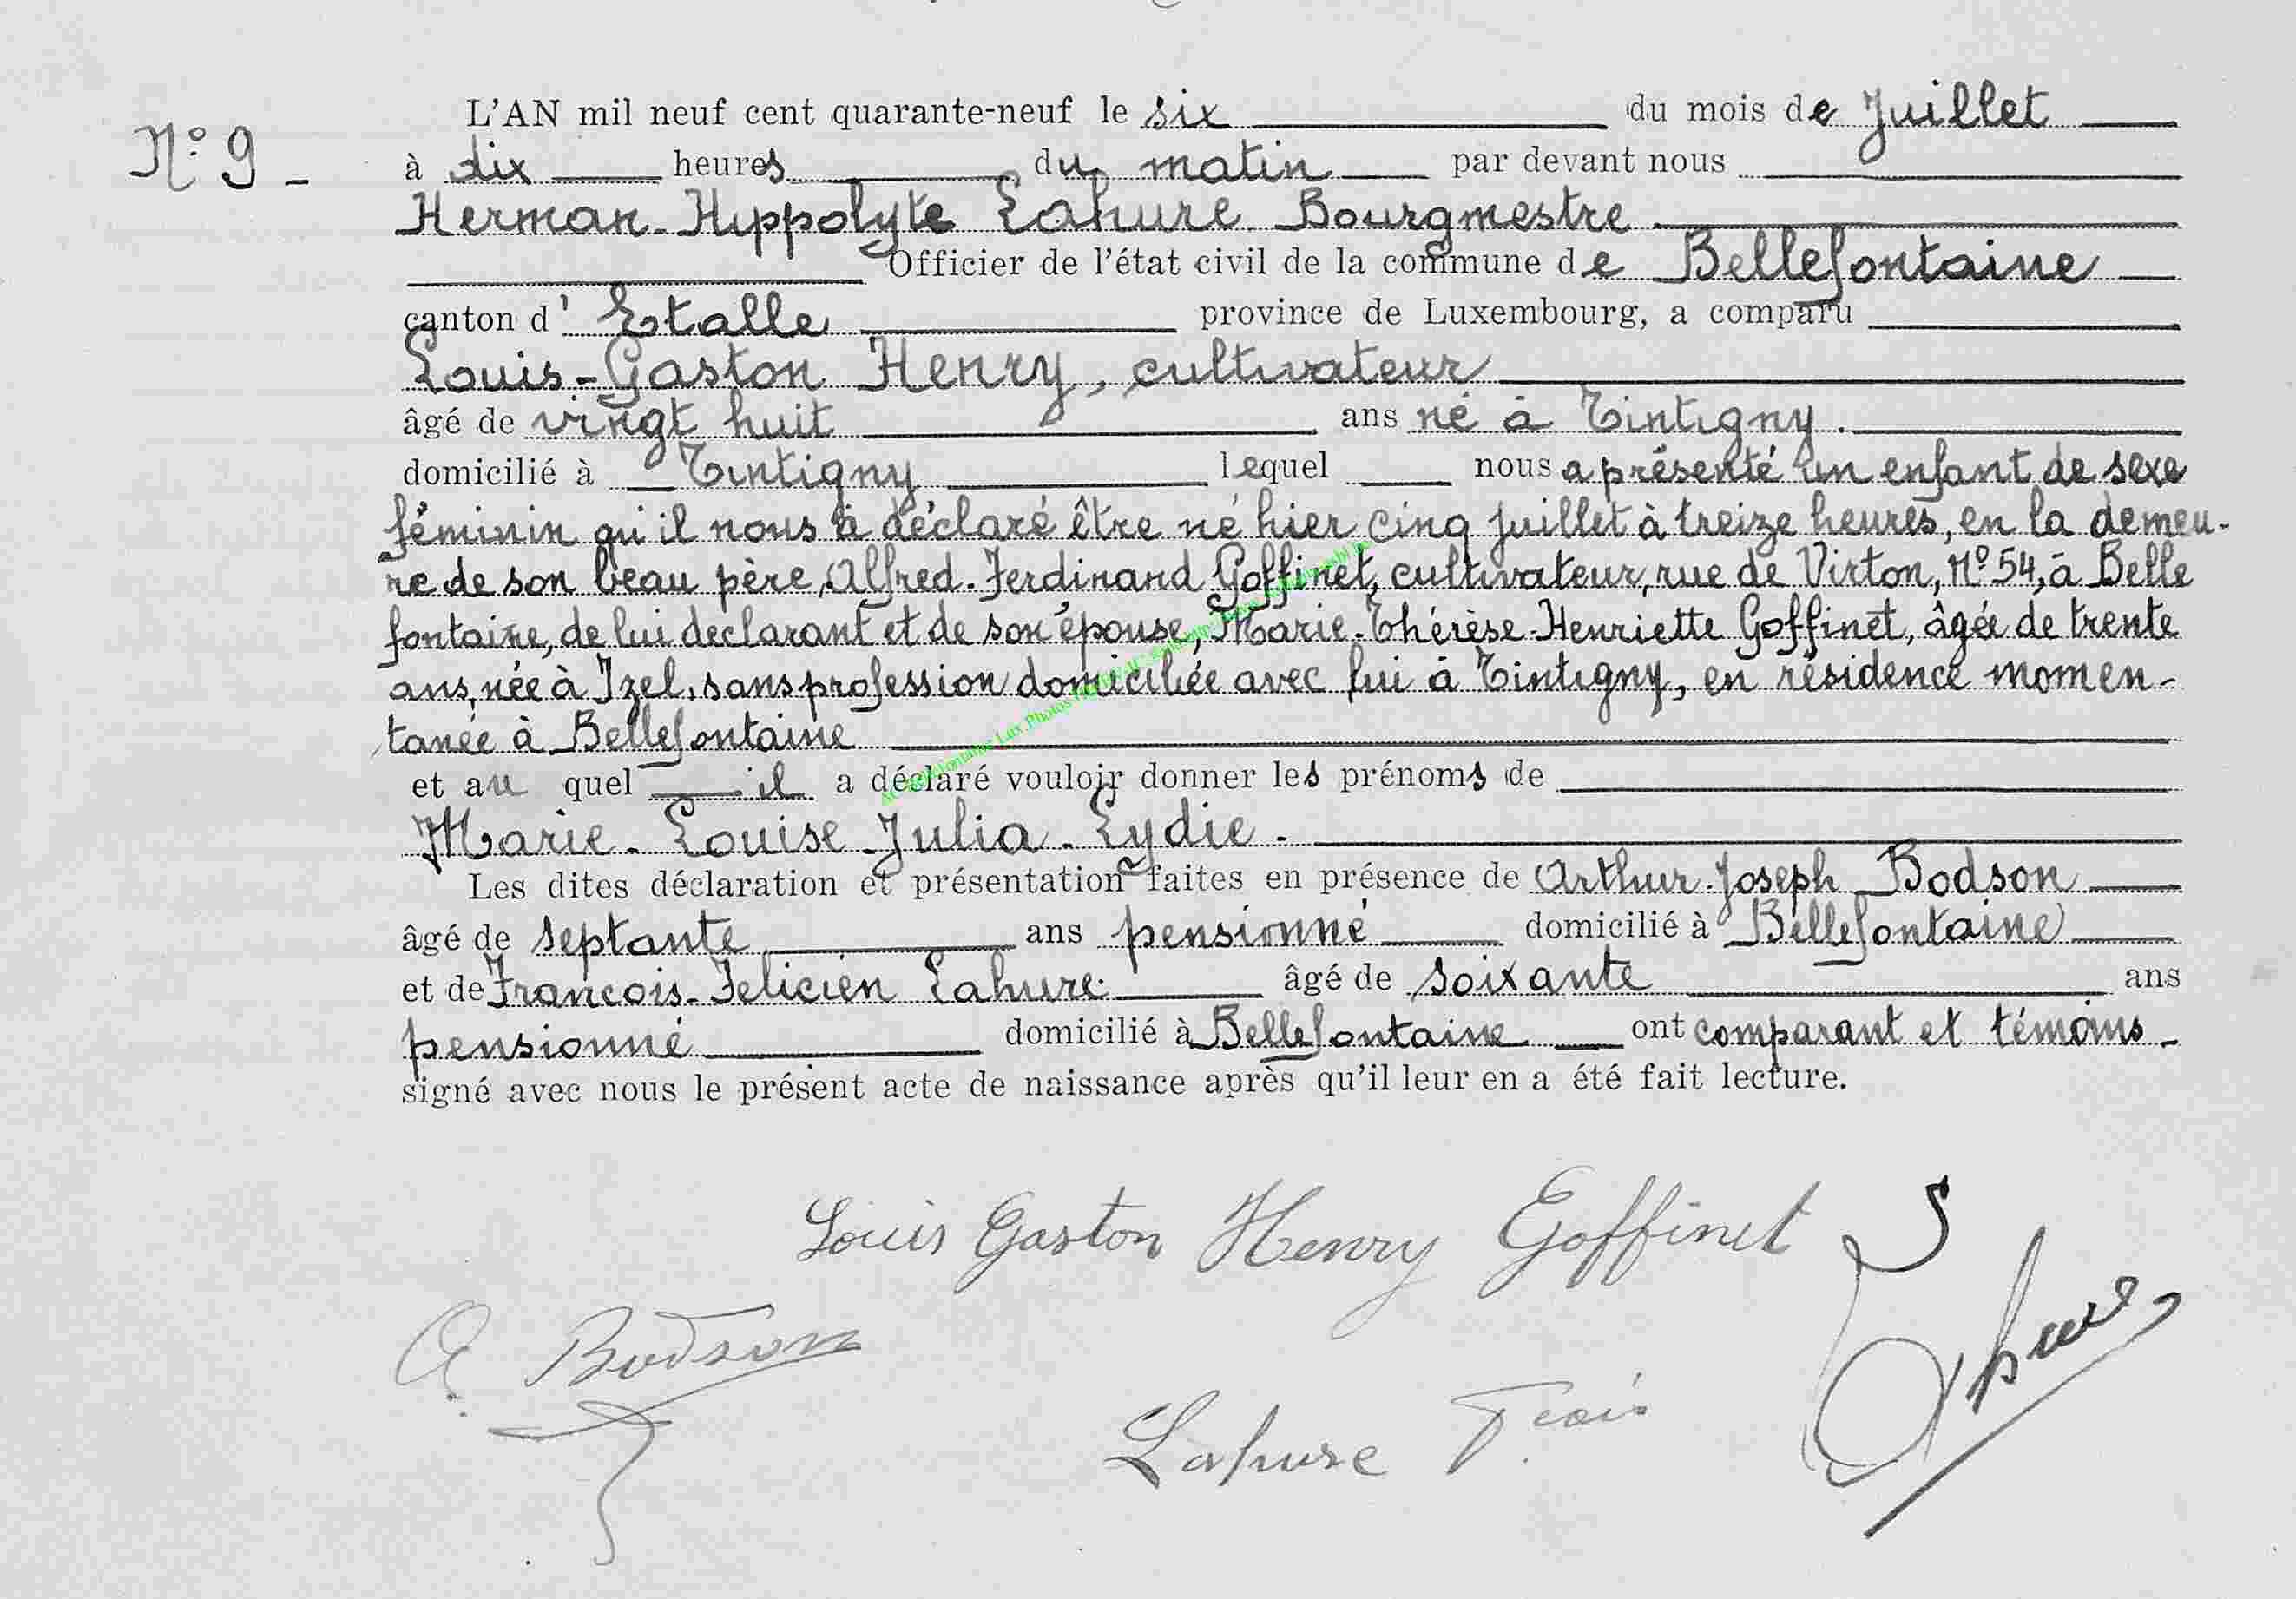 N° 9 -
L'AN mil neuf cent quarante-neuf le six du mois de Juillet
à dix heures du matin par devant nous
Herman-Hippolyte Lahure Bourgmestre
Officier de l'état civil de la commune de Bellefontaine
canton d' Etalle province de Luxembourg, a comparu
Louis-Gaston Henry, cultivateur
âgé de vingt huit ans né à Tintigny.
domicilié à Tintigny lequel nous a présenté un enfant de sexe
féminin qu'il nous a déclaré être né hier cinq juillet à treize heures, en la demeu-
re de son beau père, Alfred-Ferdinand Goffinet, cultivateur, rue de Virton, N° 54, à Belle
fontaine, de lui declarant et de son épouse, Marie-Thérèse-Henriette Goffinet, âgée de trente
ans, née à Izel, sans profession domiciliée avec lui à Tintigny, en résidence momen-
tanée à Bellefontaine
et au quel il a déclaré vouloir donner les prénoms de
Marie-Louise-Julia-Lydie.
Les dites déclaration et présentation faites en présence de Arthur-Joseph Bodson
âgé de septante ans pensionné domicilié à Bellefontaine
et de François-Félicien Lahure âgé de soixante ans
pensionné domicilié à Bellefontaine ont comparant et témoins -
signé avec nous le présent acte de naissance après qu'il leur en a été fait lecture.
Louis Gaston Henry Goffinet
A. Bodson
Lahure F.çois